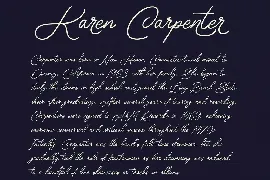 Karen Carpenter
Carpenter was born in New Haven, Connecticut and moved to
Downey, California in 1963 with her family. She began to
study the drums in high school and joined the Long Beach State
choir after graduating. After several years of touring and recording,
Carpenters were signed to A&M Records in 1969, achieving
commercial and critical success throughout the 1970s.
Initially, Carpenter was the band's full-time drummer, but she
gradually took the role of frontwoman as the drumming was reduced
to a handful of live showcases or tracks on albums.